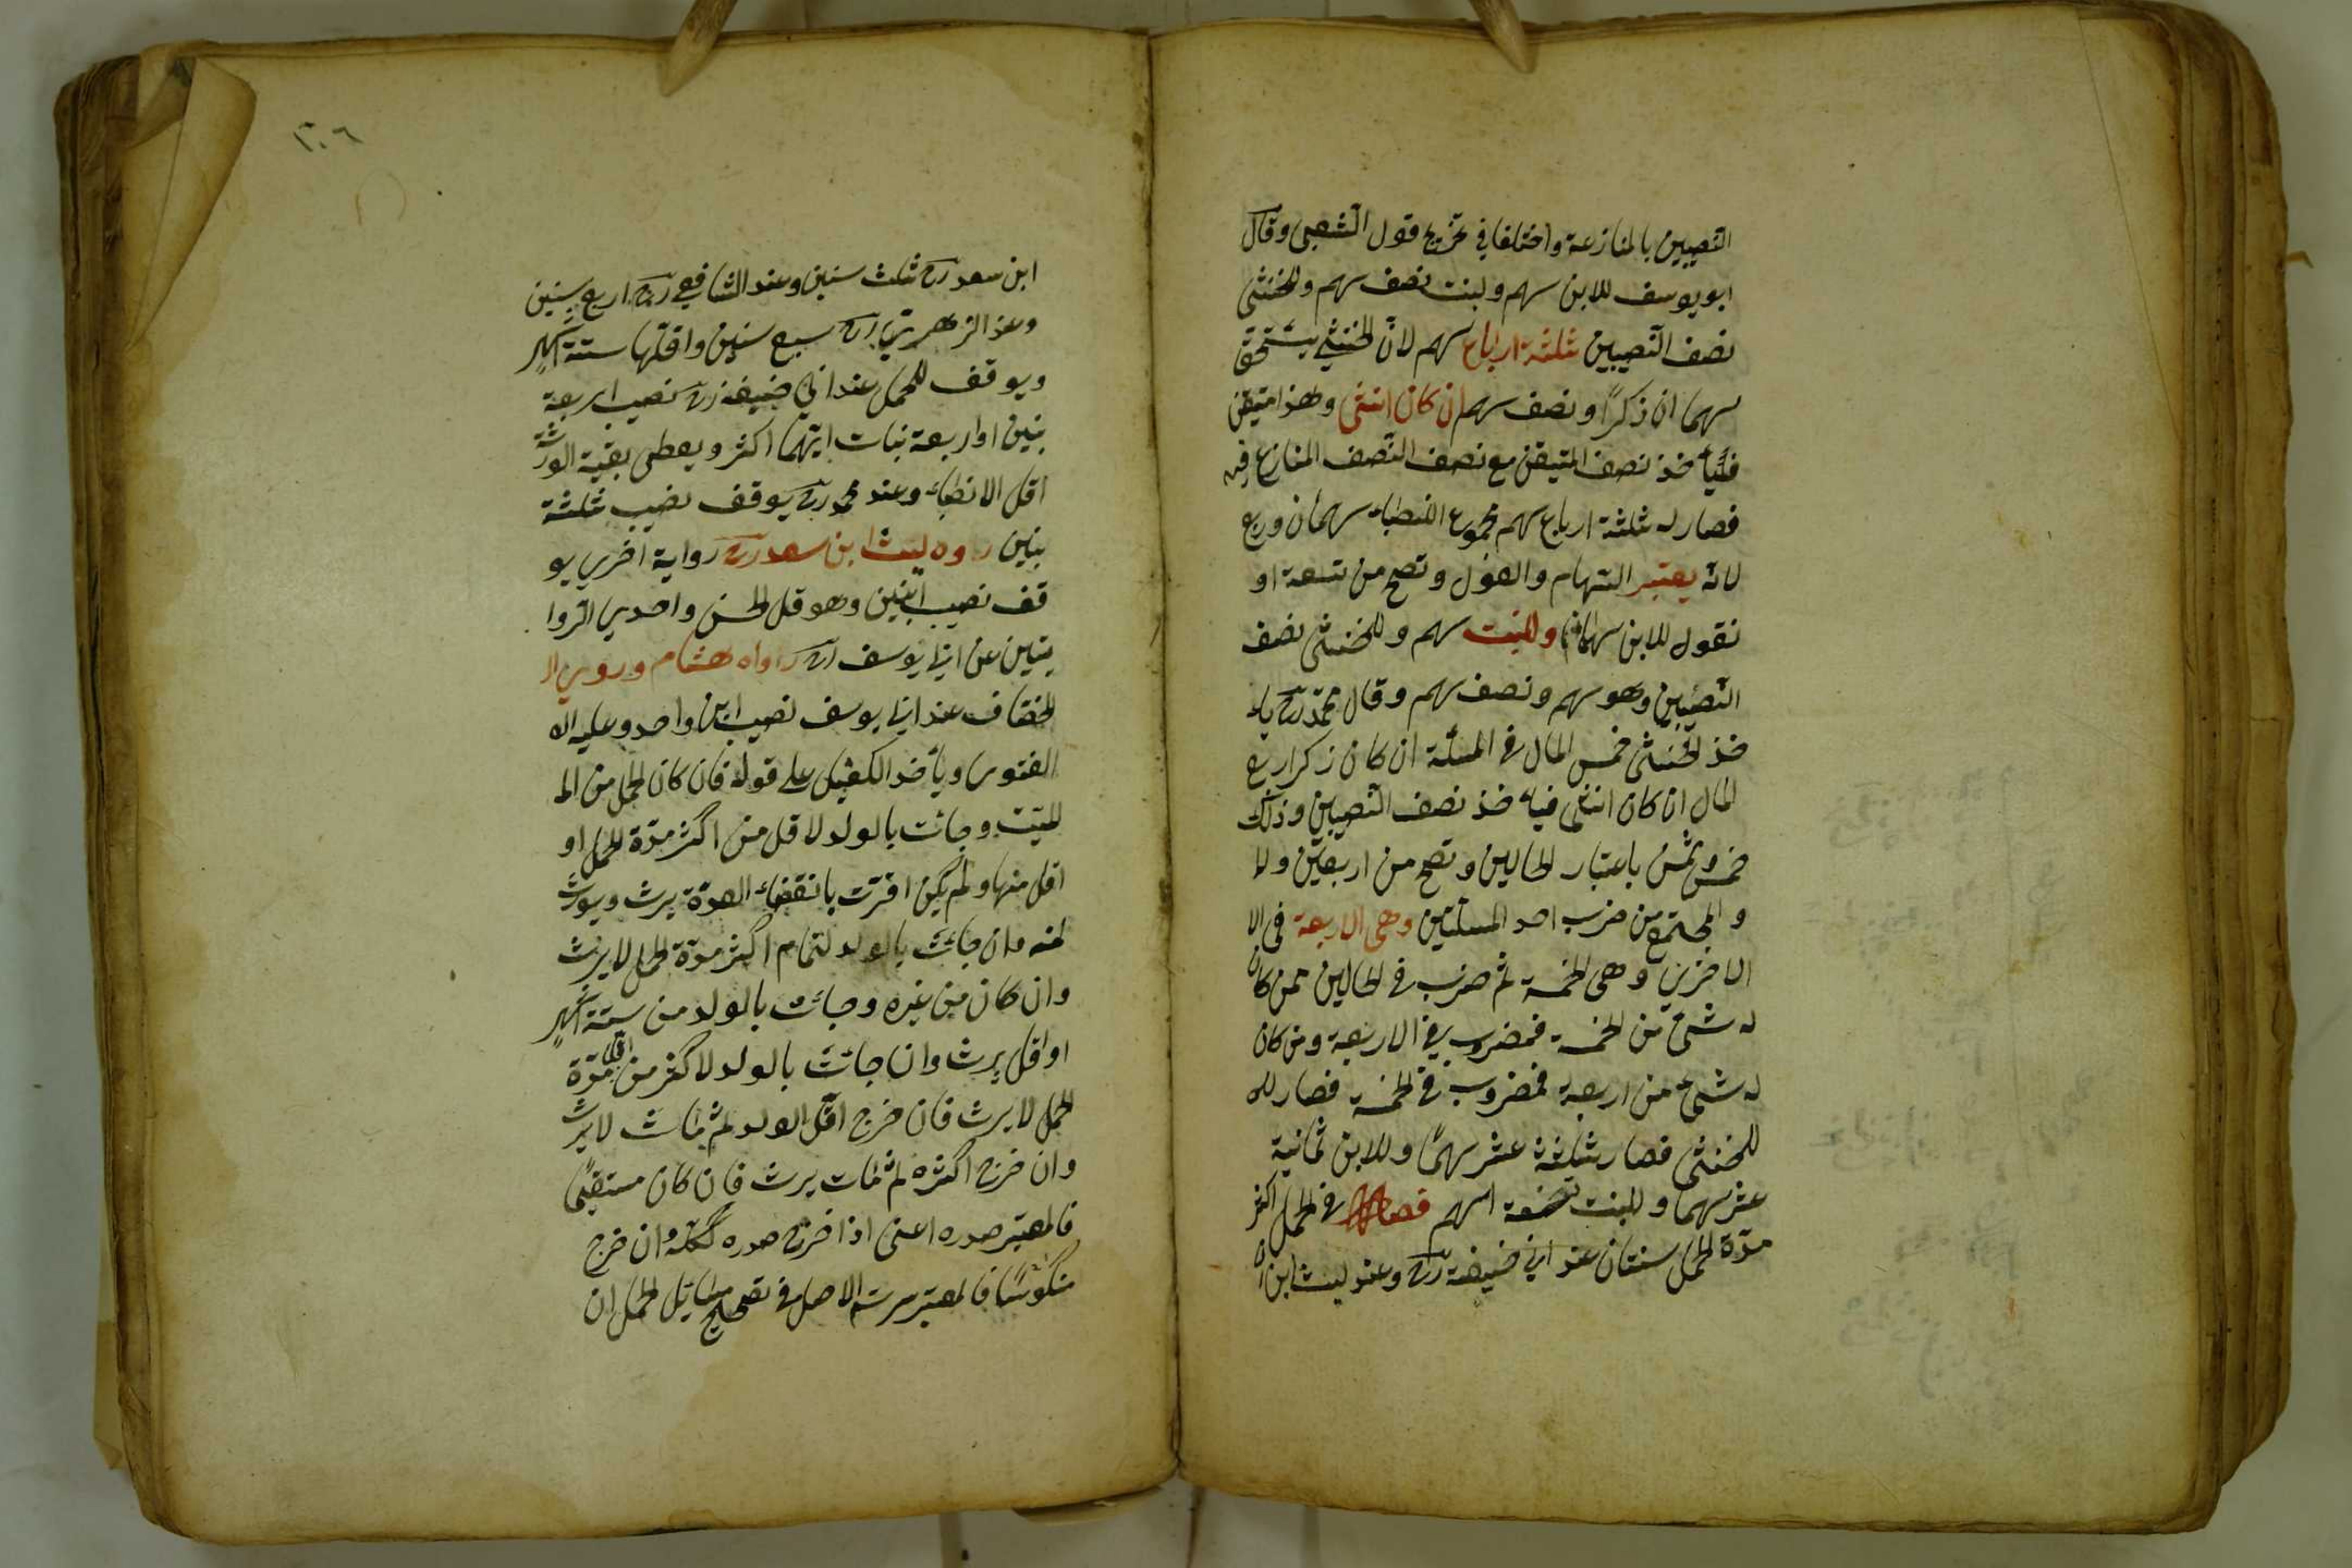 النصيبين بالمنازعة واختلفا في تخريج قول الشعبى وقال
ابو يوسف للابن سهم ولبنت نصف سهم وللخنثى
نصف النصيبين ثلثة ارباع سهم لان الخنثى يستحق
سهما ان ذكرًا ونصف سهم ان كان انثى وهذا متيقن
فيأخذ نصف المتيقن مع نصف النصف المنازع فيه
فصار له ثلثة ارباع سهم مجموع الانصباء سهمان وربع
لانه يعتبر السهام والعول وتصح من تسعة او
نقول للابن سهمان وللبنت سهم وللخنثى نصف
النصيبين وهو سهم ونصف سهم وقال محمد رح يأ
خذ الخنثى خمس المال في المسئلة ان كان ذكرا ربع
المال ان كان انثى فيأ خذ نصف النصيبين وذلك
خمس وثمن باعتبار الحالين وتصح من اربعين
و المجتمع من ضرب احد المسئلتين وهى الاربعة في الا
الاخرى وهى الخمسة ثم ضرب في الحالين فمن كان
له شئ من الخمسة فمضروب في الاربعة ومن كان
له شئ من اربعة فمضروب في الخمسة فصار
للخنثى فصار ثلثة عشر سهمًا وللابن ثمانية
عشر سهما وللبنت تسعة اسهم في الحمل اكثر
مدة الحمل سنتان عند ابى حنيفة رح وعند ليث ابن
١٠٦
ابن سعد رح ثلث سنين وعند الشافعي رح اربع سنين
وعند الزهرى رح سبع سنين واقلها ستة اشهر
ويوقف للحمل عند ابى حنيفة رح نصيب اربعة
بنين او اربعة بنات ايهما اكثر ويعطى بقية الورثة
اقل الانصباء وعند محمد رح يوقف نصيب ثلثة
بنين رواه ليث ابن سعد رح رواية اخرى يو
قف نصيب ابنين وهو قل الحسن واحدى الروا
يتين عن ابى يوسف رح رواه هشام وروى ال
الخصاف عند ابى يوسف نصيب ابن واحد وعليه ال
الفتوى ويأخذ الكفيل على قوله فان كان الحمل من الم
الميت وجائت بالولد لاقل من اكثر مدة الحمل او
اقل منها ولم يكن اقرت بانقضاء العدة يرث ويورث
منه وان جائت بالولد لتمام اكثر مدة الحمل لا يرث
وان كان من غيره وجائت بالولد من ستة اشهر
او اقل يرث وان جائت بالولد لاكثر من اقل مدة
الحمل لا يرث فان خرج اقل الولد ثم مات لا يرث
وان خرج اكثره ثم مات يرث فان كان مستقيما
فالمعتبر صدره اعنى اذا خرج صدره كله وان خرج
منكوسًا فالمعتبر سرته الاصل في تصحيح مسائل الحمل ان